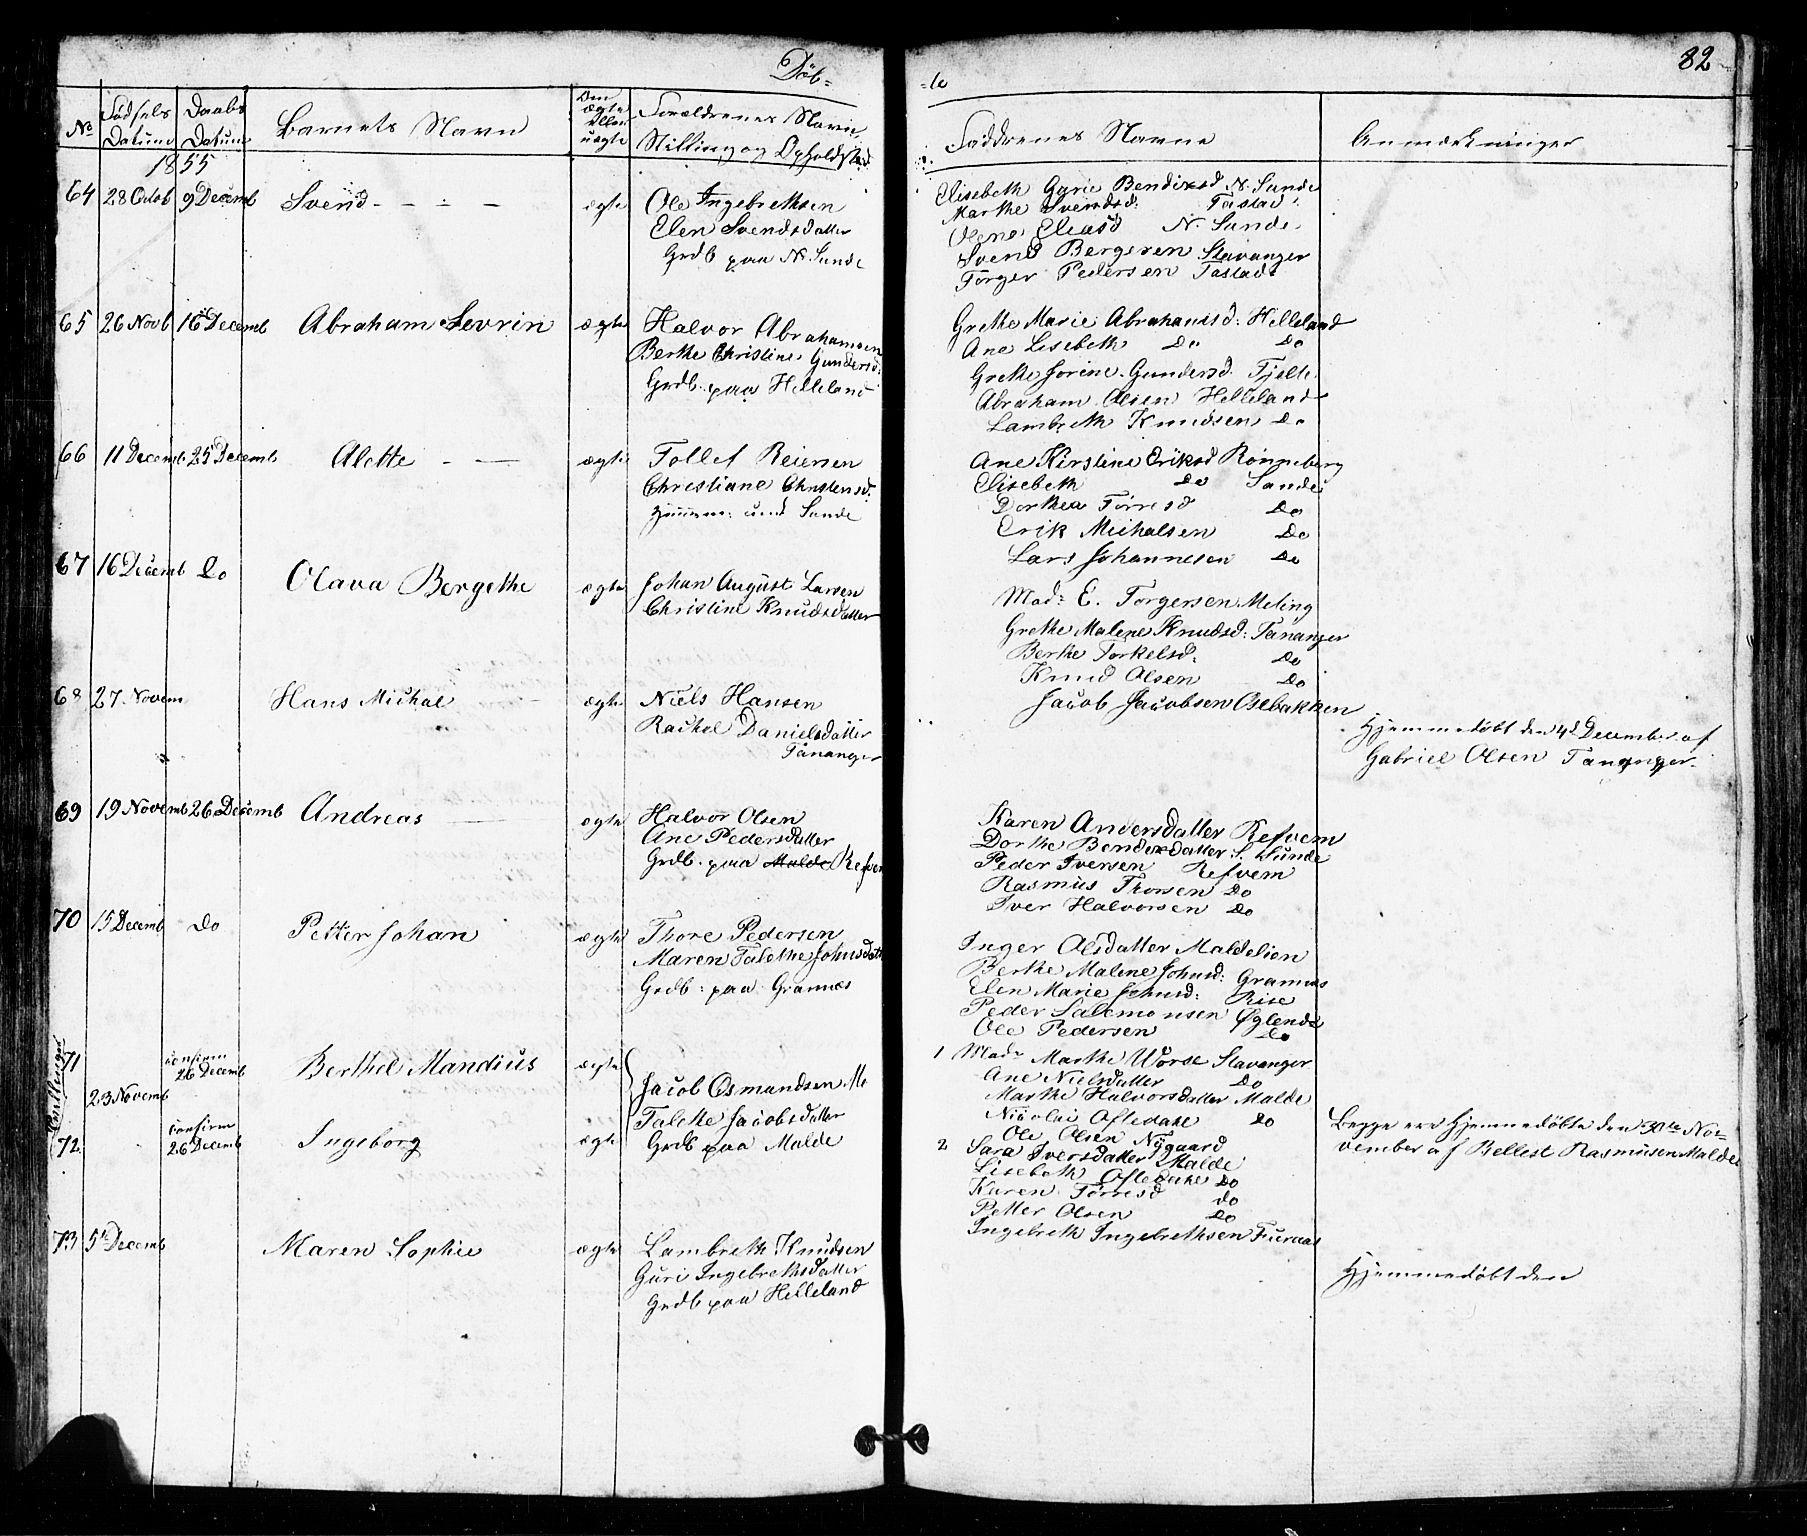 Døb-
-te
82
No
Fødsels Datum
Daabs Datum
Barnets Navn
Om ægte eller uægte
Forældrenes Navne,
Stilling og Opholdsted
Faddrenes Navne
Anmærkninger
1855
64 28 Octob 9 Decemb Svend - - - - ægte
Ole Ingebrethsen
Elen Svendsdatter
Grdb paa N. Sunde
Elisebeth Garie Bendixsd N. Sunde
Marthe Svendsd: Tastad
Olene Eliasd N. Sunde
Svend Bergesen Stavanger
Torger Pedersen Tastad
65 26 Novb 16 Decemb Abraham Sevrin ægte
Halvor Abrahamsen
Berthe Christine Gundersd:
Grdb. paa Helleland
Grethe Marie Abrahamsd: Helleland
Ane Lisebeth Do Do
Grethe Serine Gundersd. Tjelte
Abraham Olsen Helleland
Lambreth Knudsen Do
66 11 Decemb 25 Decemb Alette - - ægte
Tollef Reiersen
Christiane Christensd.
Sunde
Ane Kirstine Eriksd Rønneberg
Elisebeth Do Sunde
Dorthea Torresd Do
Erik Michalsen Do
Lars Johannesen Do
67 16 Decemb Do Olava Bergethe ægte
Johan August Larsen
Christine Knudsdatter
Mad: E. Torgersen Meling
Grethe Malene Knudsd: Tananger
Berthe Torkelsd. Do
Knud Olsen Do
Jacob Jacobsen Osebakken
68 27. Novem Hans Michal ægte
Niels Hansen
Rachel Danielsdatter
Tananger
Hjemmedøbt den 4d December af
Gabriel Olsen Tananger.
69 19 Novemb 26 Decemb Andreas ægte
Halvor Olsen
Ane Pedersdatter
Grdb. paa Malde Refvem
Karen Andersdatter Refvem
Dorthe Bendixdatter S. Sunde
Peder Iversen Refvem
Rasmus Thorsen Do
Iver Halvorsen Do
70 15 Decemb Do Petter Johan ægte
Thore Pedersen
Maren Talethe Johnsdatt
Grdb: paa Grannæs
Inger Olsdatter Maldelien
Berthe Malene Johnsd: Grannæs
Elen Marie Johnsd: Risе
Peder Salemonsen Øglend
Ole Pedersen Do
Tvillinger
71 confirm 26 Decemb Berthel Mandius ægte
23 Novemb
72 confirm 26 Decemb Ingeborg ægte
Jacob Osmundsen
Talethe Jacobsdatter
Grdb paa Malde
1 Mad: Marthe Worse Stavanger
Ane Nielsdatter Do
Marthe Halvorsdatter Malde
Nicolai Oftedahl Do
Ole Olsen Nygaard
2 Sara Iversdatter Malde
Lisebeth Oftedahl Do
Karen Torresd Do
Petter Olsen Do
Ingebreth Ingebrethsen
Begge ere Hjemmedøbte den 30te No-
vember af Bellest Rasmusen Malde
73 5te Decemb Maren Sophie ægte
Lambreth Knudsen
Guri Ingebrethsdatter
Grdb paa Helleland
Hjemmedøbt den